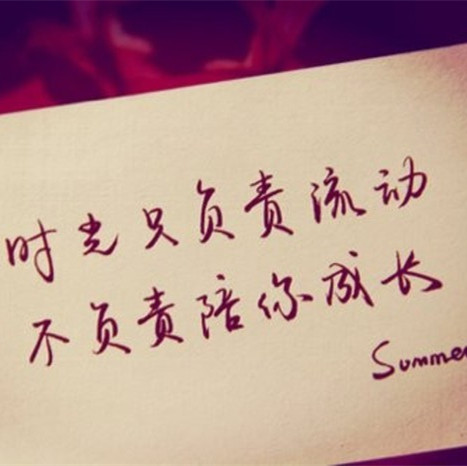 时光只负责流动
不负责陪你成长
Summe